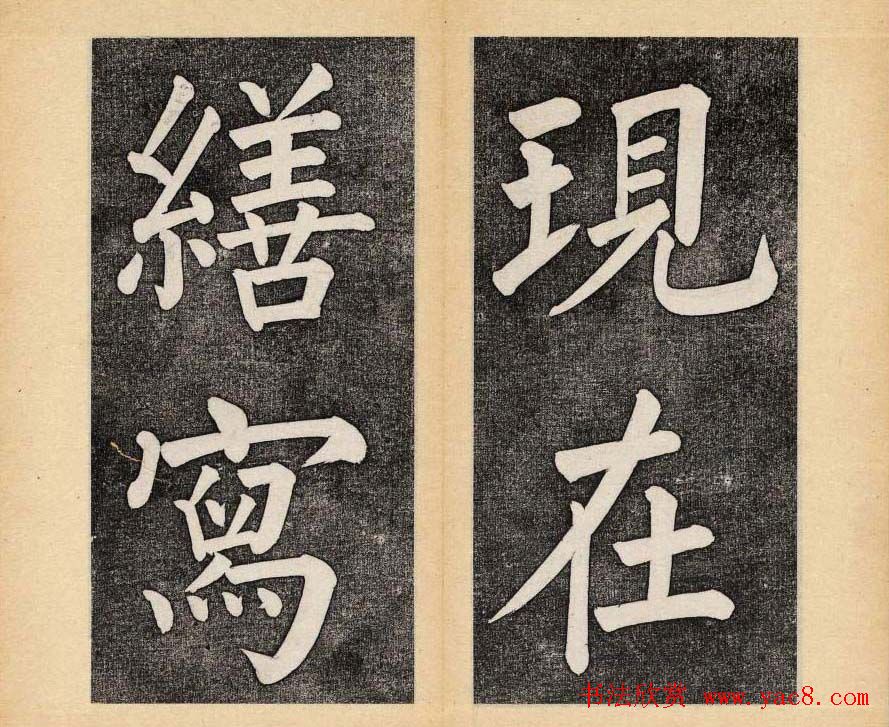 現在
繕寫
书法欣赏 www.yac8.com